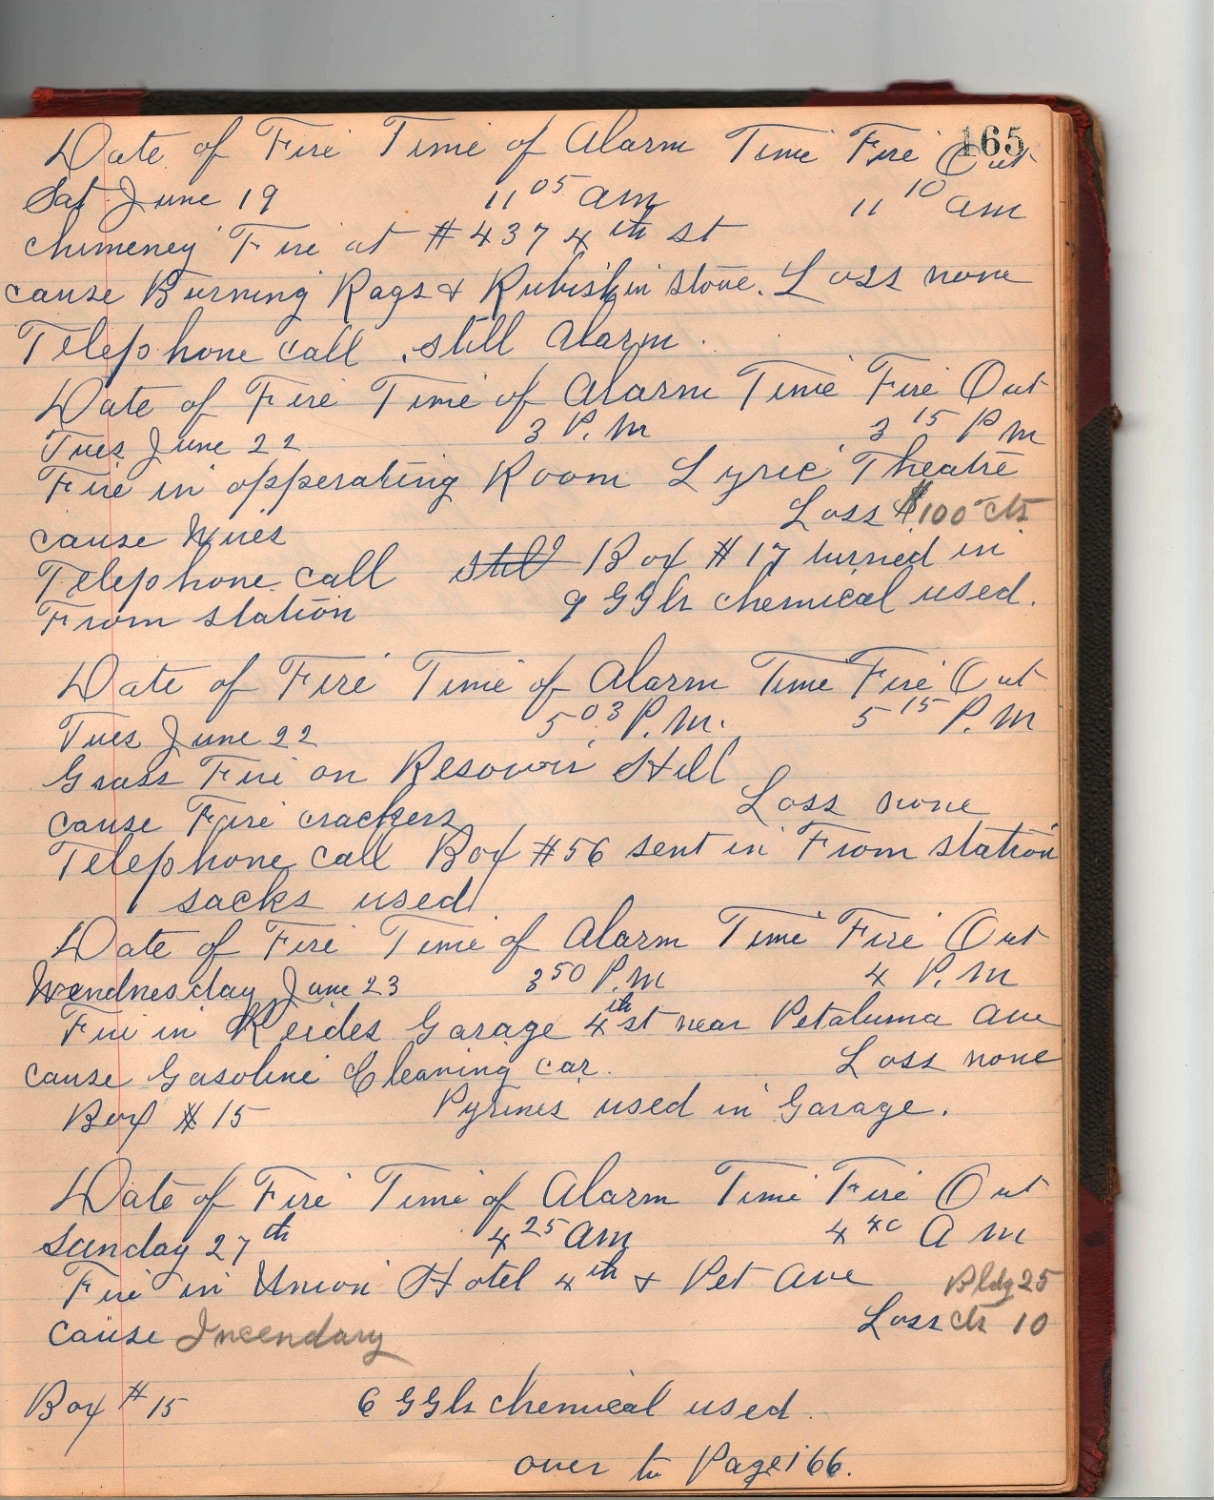 165
Date of Fire Time of Alarm Time Fire Out
Sat June 19 11 05 am 11 10 am
chimeney Fire at #437 4th st
cause Burning Rags & Rubish in stove. Loss none
Telephone call . still Alarm .
Date of Fire Time of Alarm Time Fire Out
Tues June 22 3 P.M 3 15 P M
Fire in opperating Room Lyric Theatre
Loss $100 cts
cause Wires
Telephone call still Box #17 turned in
From station 9 GGls chemical used.
Date of Fire Time of Alarm Time Fire Out
Tues June 22 5 03 P.M. 5 15 P.M
Grass Fire on Resovoir Hill
cause Fire crackers Loss none
Telephone call Box #56 sent in From station
sacks used
Date of Fire Time of Alarm Time Fire Out
Wendnesday June 23 3 50 P.M 4 P.M
Fire in Reides Garage 4th st near Petaluma Ave
cause Gasoline Cleaning car. Loss none
Box #15 Pyrines used in Garage.
Date of Fire Time of Alarm Time Fire Out
Sunday 27th 4 25 am 4 40 A M
Fire in Union Hotel 4th & Pet Ave Bldg 25
cause Incendary Loss cts 10
Box #15 6 GGls chemical used.
over to Page 166.